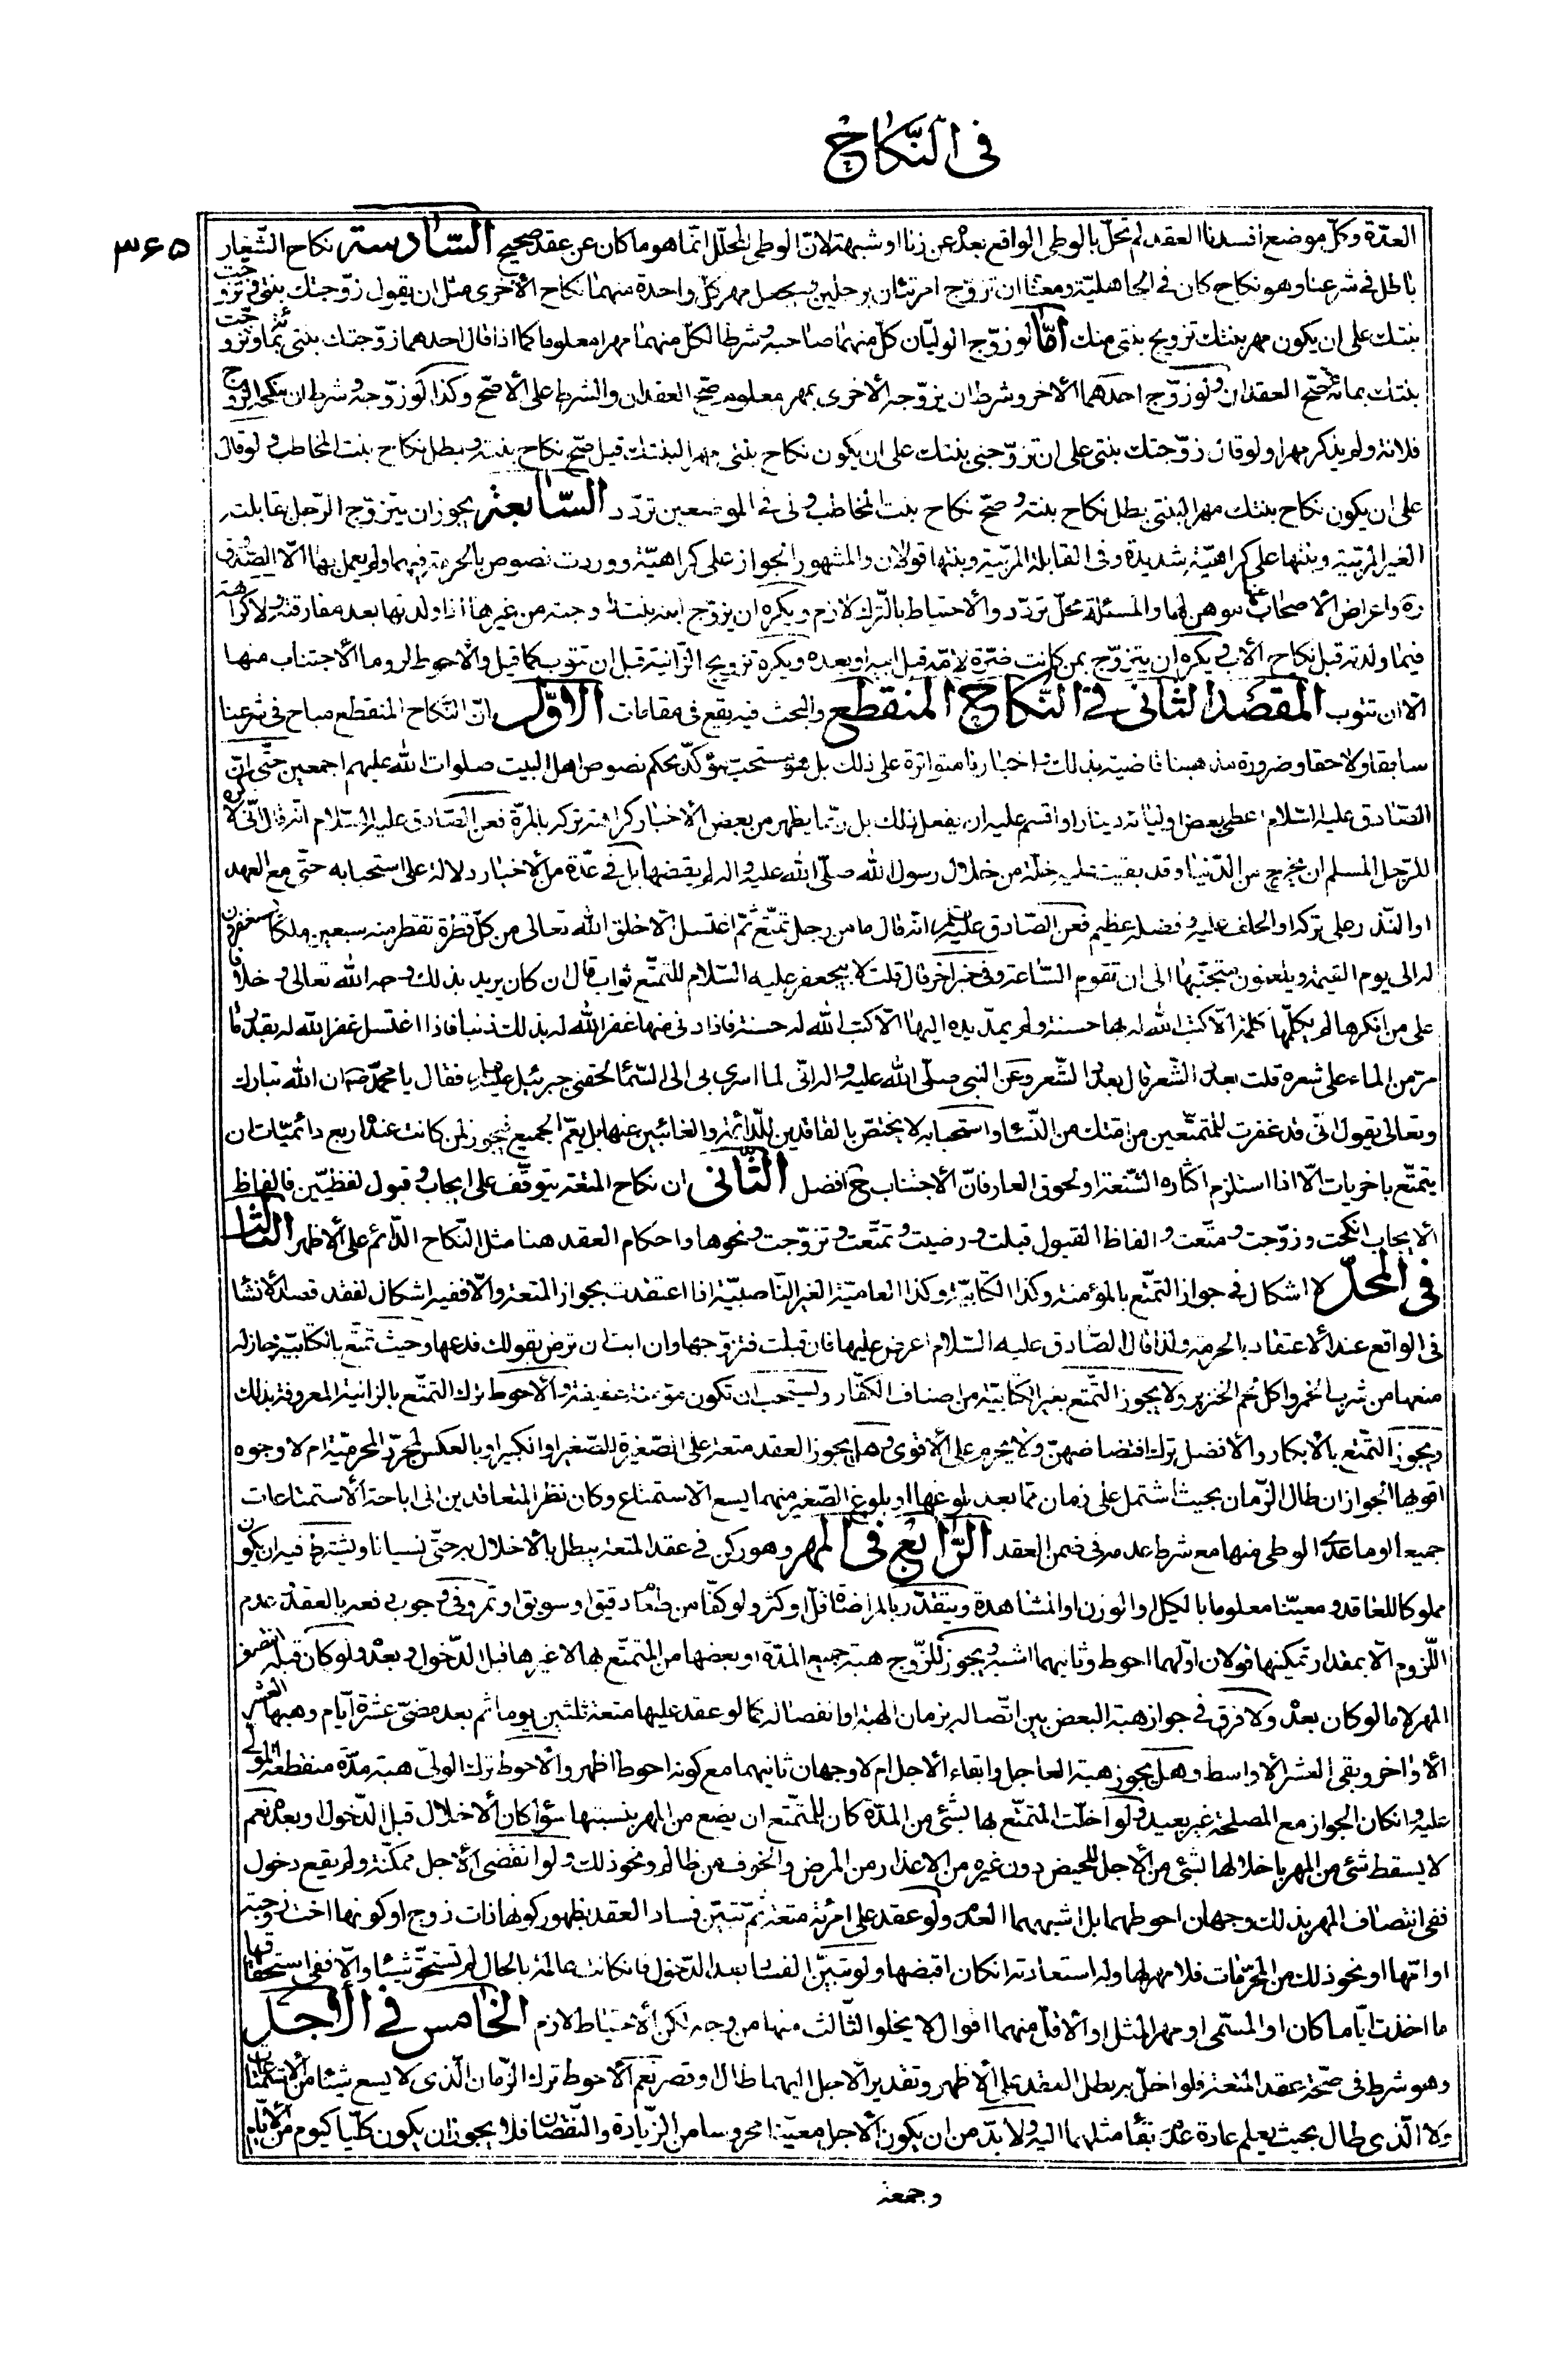 فى النّكاح
٣۶۵
العدّة وكلّ موضع افسدنا العقد لم تحلّ بالوطى الواقع بعده عن زنا او شبهة لانّ الوطى المحلّل انّما هو ما كان عن عقد صحيح السّادسة نكاح الشّغار
باطل فى شرعنا وهو نكاح كان فى الجاهليّة ومعناه ان تزوّج امرئتان برجلين ويجعل مهر كلّ واحدة منهما نكاح الأخرى مثل ان يقول زوّجتك بنتى وتزوّجت
بنتك على ان يكون مهر بنتك تزويج بنتى منك امّا لو زوّج الوليّان كلّ منهما صاحبه وشرطا لكلّ منهما مهرا معلوما كما اذا قال احدهما زوّجتك بنتى بمائة وتزوّجت
بنتك بمائة صحّ العقدان ولو زوّج احدهما الأخر وشرط ان يزوّجه الأخرى بمهر معلوم صحّ العقدان والشرط على الأصحّ وكذا لو زوّجه وشرط ان ينكحه الزوج
فلانة ولم يذكر مهرا ولو قال زوّجتك بنتى على ان تزوّجنى بنتك على ان يكون نكاح بنتى مهرا لبنتك قيل صحّ نكاح بنته وبطل نكاح بنت المخاطب ولو قال
على ان يكون نكاح بنتك مهرا لبنتى بطل نكاح بنته وصحّ نكاح بنت المخاطب وفى الموضعين تردّد السّابعة يجوز ان يتزوّج الرّجل بقابلته
الغير المربّية وبنتها على كراهيّة شديدة وفى القابلة المربّية وبنتها قولان والمشهور الجواز على كراهيّة ووردت نصوص بالحرمة فيهما ولم يعمل بها الّا الصّدوق
ره واعراض الأصحاب عنها موهن لها والمسئلة محلّ تردّد والأحتياط بالتّرك لازم ويكره ان يزوّج ابنه بنت زوجته من غيرها اذا ولدتها بعد مفارقته ولا كراهة
فيما ولدته قبل نكاح الأب ويكره ان يتزوّج بمن كانت ضرّة لامّه قبل ابيه او بعده ويكره تزويج الزّانية قبل ان تتوب كما قيل والأحوط لزوما الأجتناب منها
الّا ان تتوب المقصد الثّانى فى النّكاح المنقطع والبحث فيه يقع فى مقامات الاوّل انّ النّكاح المنقطع مباح فى شرعنا
سابقا ولاحقا وضرورة مذهبنا قاضية بذلك واخبارنا متواترة على ذلك بل هو مستحبّ مؤكّد بحكم نصوص اهل البيت صلوات الله عليهم اجمعين حتّى انّ
الصّادق عليه السّلام اعطى بعض اوليائه دينارا واقسم عليه ان يفعل ذلك بل ربّما يظهر من بعض الأخبار كراهة تركه بالمرّة فعن الصّادق عليه السّلام انّه قال انّى لاكره
للرّجل المسلم ان يخرج من الدّنيا وقد بقيت عليه خلّة من خلال رسول الله صلّى الله عليه واله لم يقضها بل فى عدّة من الأخبار دلالة على استحبابه حتّى مع العهد
او النّذر على تركه او الحلف عليه وفضله عظيم فعن الصّادق عليه السلم انّه قال ما من رجل تمتّع ثمّ اغتسل الّا خلق الله تعالى من كلّ قطرة تقطر منه سبعين ملكا يستغفرون
له الى يوم القيمة ويلعنون متجنّبها الى ان تقوم السّاعة وفى خبر اخر قال قلت لابيجعفر عليه السّلام للتمتّع ثواب قال ان كان يريد بذلك وجه الله تعالى وخلافا
على من انكرها لم يكلّمها كلمة الّا كتب الله له بها حسنة ولم يمدّ يده اليها الّا كتب الله له حسنة فاذا دنى منها غفر الله له بذلك ذنبا فاذا اغتسل غفر الله له بقدر ما
مرّ من الماء على شعره قلت بعدد الشّعر قال بعدد الشّعر وعن النبى صلّى الله عليه واله انّى لما اسرى بى الى السّماء لحقنى جبرئيل عليه السلم فقال يا محمّد ص ان الله تبارك
وتعالى يقول انّى قد غفرت للمتمتّعين من امّتك من النّساء واستحبابه لا يختصّ بالفاقدين للدّائمة والغائبين عنها بل يعمّ الجميع فيجوز لمن كانت عنده اربع دائميّات ان
يتمتّع باخريات الّا اذا استلزم اثاره الشّنعة او لحوق العار فانّ الأجتناب ح افضل الثّانى ان نكاح المتعة يتوقّف على ايجاب وقبول لفظيّين فالفاظ
الأيجاب انكحت وزوّجت ومتّعت والفاظ القبول قبلت ورضيت وتمتّعت وتزوّجت ونحوها واحكام العقد هنا مثل النّكاح الدّائم على الأظهر الثّالث
فى المحلّ لا اشكال فى جواز التمتّع بالمؤمنة وكذا الكتابيّة وكذا العاميّة الغير النّاصبيّة اذا اعتقدت بجواز المتعة والّا ففيه اشكال لفقد قصد الأنشاء
فى الواقع عند الأعتقاد بالحرمة ولذا قال الصّادق عليه السّلام اعرض عليها فان قبلت فتزوّجها وان ابت ان ترضى بقولك فدعها وحيث تمتّع بالكتابيّة جاز له
منعها من شرب الخمر واكل لحم الخنزير ولا يجوز التّمتع بغير الكتابيّة من اصناف الكفّار ويستحب ان تكون مؤمنة عفيفة والأحوط ترك التمتّع بالزانية المعروفة بذلك
ويجوز التمتّع بالأبكار والأفضل ترك افتضاضهنّ ولا يحرم على الأقوى وهل يجوز العقد متعة على الصّغيرة للصّغير او الكبير او بالعكس لمجرّد المحرميّة ام لا وجوه
اقويها الجواز ان طال الزّمان بحيث اشتمل على زمان ممّا بعد بلوغها او بلوغ الصّغير منهما يسع الأستمتاع وكان نظر المتعاقدين الى اباحة الأستمتاعات
جميعا او ما عدا الوطى منها مع شرط عدمه فى ضمن العقد الرّابع فى المهر وهو ركن فى عقد المتعة يبطل بالأخلال به حتّى نسيانا ويشترط فيه ان يكون
مملوكا للعاقد ومعيّنا معلوما بالكيل او الوزن او المشاهدة ويتقدّر بالمراضاة قلّ او كثر ولو كفّا من طعام دقيق او سويق او تمر وفى وجوب دفعه بالعقد او عدم
اللّزوم الّا بمقدار تمكينها قولان اوّلهما احوط وثانيهما اشبه ويجوز للزّوج هبة جميع المدّة او بعضها من المتمتّع بها لا غيرها قبل الدّخول وبعده ولو كان قبله تنصّف
المهر لا ما لو كان بعده ولا فرق فى جواز هبة البعض بين اتّصاله بزمان الهبة او انفصاله كما لو عقد عليها متعة ثلثين يوما ثم بعد مضىّ عشرة ايّام وهبها العشر
الأواخر وبقى العشر الأواسط وهل يجوز هبة العاجل وابقاء الأجل ام لا وجهان ثانيهما مع كونه احوط اظهر والأحوط ترك الولىّ هبة مدّة منقطعة المولّى
عليه وانكان الجواز مع المصلحة غير بعيد ولو اخلّت المتمتّع بها بشئ من المدّة كان للمتمتّع ان يضع من المهر بنسبتها سواء كان الأخلال قبل الدّخول او بعده نعم
لا يسقط شئ من المهر باخلالها بشئ من الأجل للحيض دون غيره من الاعذار من المرض والخوف من ظالم ونحو ذلك ولو انقضى الأجل ممكّنة ولم يقع دخول
ففى انتصاف المهر بذلك وجهان احوطهما بل اشبههما العدم ولو عقد على امرئة متعة ثمّ تبيّن فساد العقد بظهور كونها ذات زوج او كونها اخت زوجته
او امّها او نحو ذلك من المحرّمات فلا مهر لها وله استعادته انكان اقبضها ولو تبيّن الفساد بعد الدّخول فانكانت عالمة بالحال لم تستحقّ شيئا والّا ففى استحقاقها
ما اخذت ايّاما كان او المسمّى او مهر المثل او الأقلّ منهما اقوال لا يخلو الثّالث منها من وجه لكن الأحتياط لازم الخامس فى الأجل
وهو شرط فى صحّة عقد المتعة فلو اخلّ به بطل العقد على الأظهر وتقدير الأجل اليهما طال او قصر نعم الأحوط ترك الزّمان الّذى لا يسع شيئا من الأستمتاعات
ولا الّذى طال بحيث يعلم عادة عدم بقاء مثلهما اليه ولا بدّ من ان يكون الأجل معيّنا محروسا من الزّيادة والنّقصان فلا يجوز ان يكون كلّيا كيوم من الأيّام
وجمعة